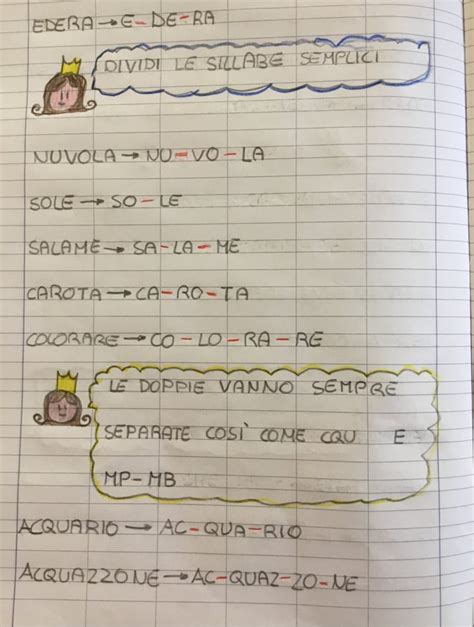 EDERA → E-DE-RA
DIVIDI LE SILLABE SEMPLICI
NUVOLA → NU-VO-LA
SOLE → SO-LE
SALAME → SA-LA-ME
CAROTA → CA-RO-TA
COLORARE → CO-LO-RA-RE
LE DOPPIE VANNO SEMPRE
SEPARATE COSÌ COME CQU E
MP-MB
ACQUARIO → AC-QUA-RIO
ACQUAZZONE → AC-QUAZ-ZO-NE